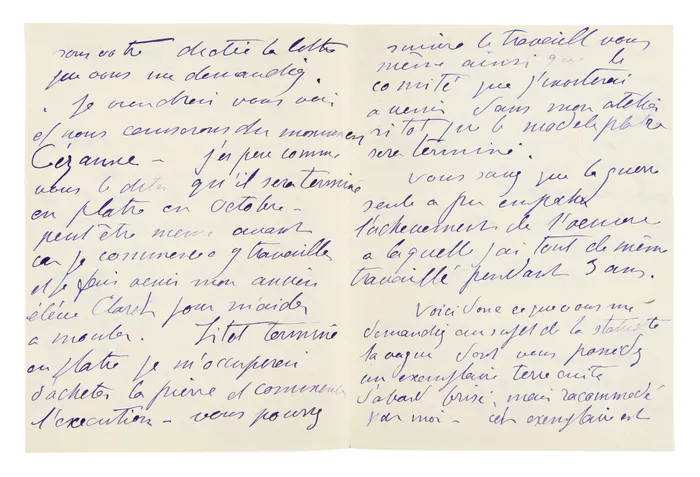 sous votre dictée la lettre
que vous me demandiez.
Je viendrai vous voir
et nous causerons du monument
Cézanne - j'espère comme
vous le dites qu'il sera terminé
en platre en octobre -
peut être meme avant
car je commence a y travailler
et je fais venir mon ancien
élève Clareth pour m'aider
a mouler. Sitot terminé
en platre je m'occuperai
d'acheter la pierre et commencer
l'execution - vous pourrez
suivre le travaill vous
même ainsi que le
comité que j'inviterai
a venir dans mon atelier
sitot que le modele platre
sera terminé.
Vous savez que la guerre
seule a pu empecher
l'achevement de l'oeuvre
a laquelle j'ai tout de même
travaillé pendant 3 ans.
Voici donc ce que vous me
demandiez au sujet de la statuette
la vague dont vous possedez
un exemplaire terre cuite
d'abord brisé, mais racommodé
par moi - cet exemplaire est